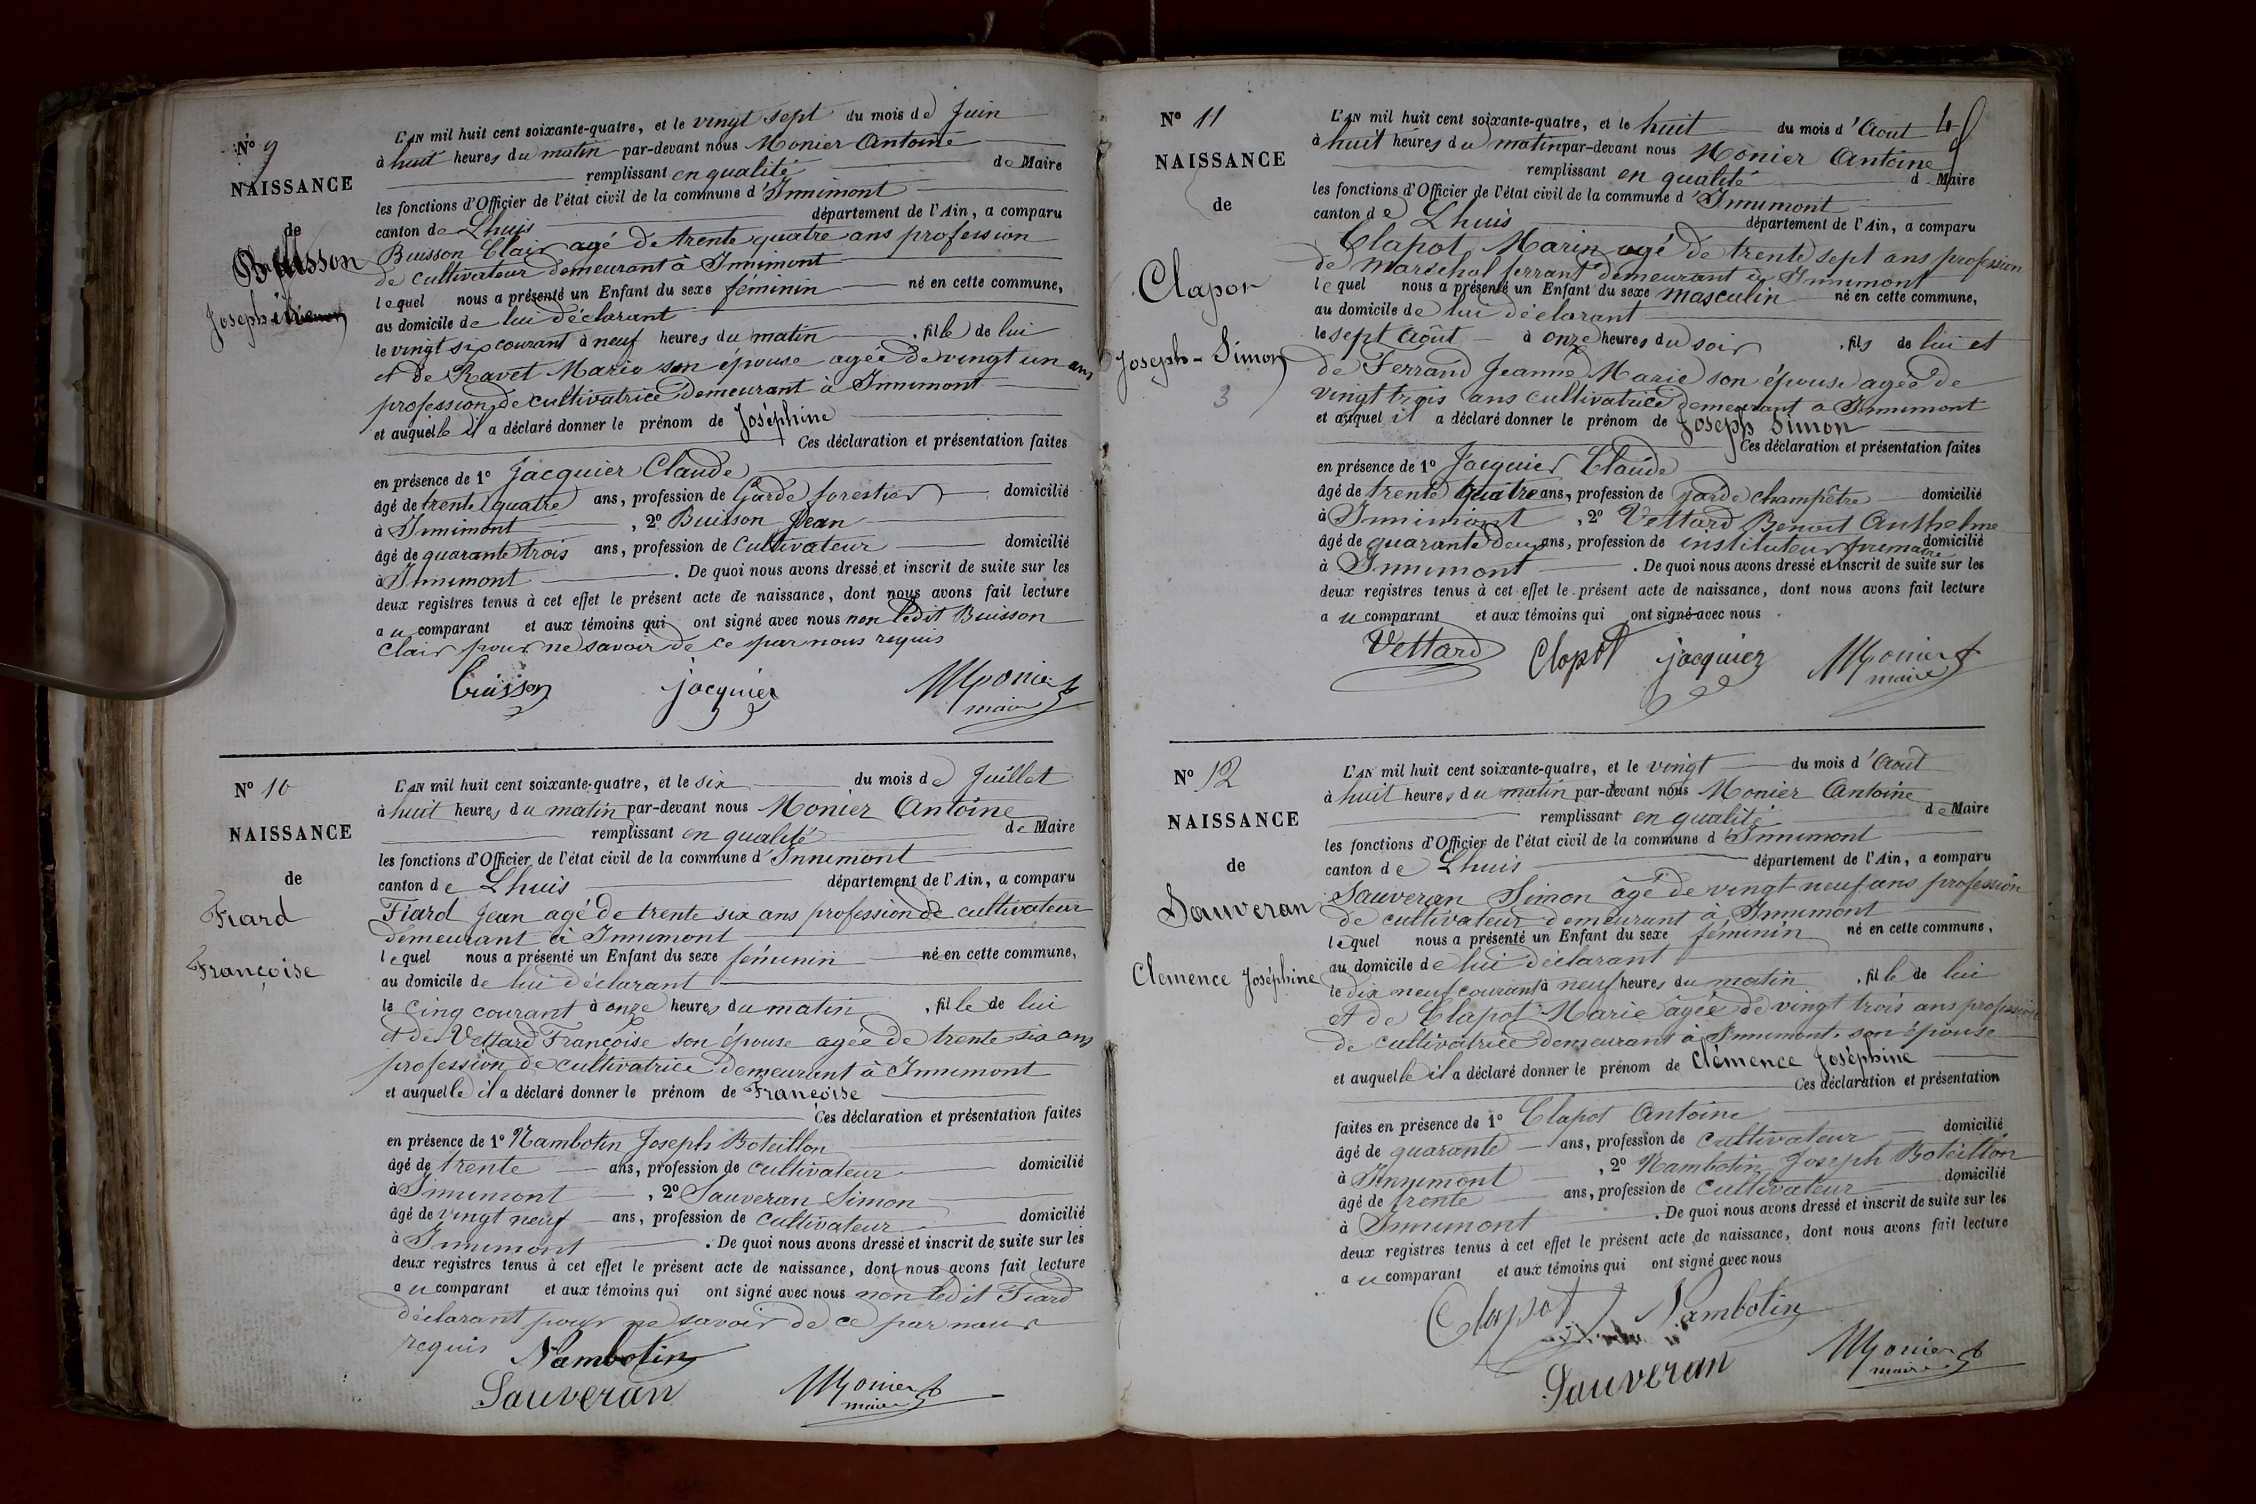 N° 9
NAISSANCE
de
Buisson
Joséphine
L'AN mil huit cent soixante-quatre, et le vingt sept du mois de Juin
à huit heures du matin par-devant nous Monier Antoine
remplissant en qualité de Maire
les fonctions d'Officier de l'état civil de la commune d'Innimont
canton de Lhuis département de l'Ain, a comparu
Buisson Clair agé de trente quatre ans profession
de cultivateur demeurant à Innimont
lequel nous a présenté un Enfant du sexe féminin né en cette commune,
au domicile de lui déclarant
le vingt six courant à neuf heures du matin , fille de lui
et de Ravet Marie son épouse agée de vingt un ans
profession de cultivatrice demeurant à Innimont
et auquelle il a déclaré donner le prénom de Joséphine
Ces déclaration et présentation faites
en présence de 1° Jacquier Claude
âgé de trente quatre ans, profession de Garde forestier domicilié
à Innimont , 2° Buisson Jean
âgé de quarante trois ans, profession de Cultivateur domicilié
à Innimont . De quoi nous avons dressé et inscrit de suite sur les
deux registres tenus à cet effet le présent acte de naissance, dont nous avons fait lecture
au comparant et aux témoins qui ont signé avec nous non ledit Buisson
Clair pour ne savoir de ce par nous requis
buisson jacquier Monier
maire
N° 10
NAISSANCE
de
Fiard
Françoise
L'AN mil huit cent soixante-quatre, et le six du mois de Juillet
à huit heures du matin par-devant nous Monier Antoine
remplissant en qualité de Maire
les fonctions d'Officier de l'état civil de la commune d'Innimont
canton de Lhuis département de l'Ain, a comparu
Fiard Jean agé de trente six ans profession de cultivateur
demeurant à Innimont
lequel nous a présenté un Enfant du sexe féminin né en cette commune,
au domicile de lui déclarant
le cinq courant à onze heures du matin , fille de lui
et de Vettard Françoise son épouse agée de trente six ans
profession de cultivatrice demeurant à Innimont
et auquelle il a déclaré donner le prénom de Françoise
Ces déclaration et présentation faites
en présence de 1° Nambotin Joseph Boteillon
âgé de trente ans, profession de cultivateur domicilié
à Innimont , 2° Sauveran Simon
âgé de vingt neuf ans, profession de cultivateur domicilié
à Innimont . De quoi nous avons dressé et inscrit de suite sur les
deux registres tenus à cet effet le présent acte de naissance, dont nous avons fait lecture
au comparant et aux témoins qui ont signé avec nous non ledit Fiard
déclarant pour ne savoir de ce par nous
requis Nambotin
Sauveran Monier
maire
N° 11
NAISSANCE
de
Clapot
Joseph-Simon
3
L'AN mil huit cent soixante-quatre, et le huit du mois d'Aout
à huit heures du matin par-devant nous Monier Antoine
remplissant en qualité d Maire
les fonctions d'Officier de l'état civil de la commune d'Innimont
canton de Lhuis département de l'Ain, a comparu
Clapot Marin agé de trente sept ans profession
de maréchal ferrant demeurant à Innimont
lequel nous a présenté un Enfant du sexe masculin né en cette commune,
au domicile de lui déclarant
le sept Août à onze heures du soir , fils de lui et
de Ferrand Jeanne Marie son épouse agée de
vingt trois ans cultivatrice demeurant à Innimont
et auquel il a déclaré donner le prénom de Joseph Simon
Ces déclaration et présentation faites
en présence de 1° Jacquier Claude
âgé de trente quatre ans, profession de garde champêtre domicilié
à Innimont , 2° Vettard Benoit Anthelme
âgé de quarante deux ans, profession de instituteur primaire domicilié
à Innimont . De quoi nous avons dressé et inscrit de suite sur les
deux registres tenus à cet effet le présent acte de naissance, dont nous avons fait lecture
au comparant et aux témoins qui ont signé avec nous
Vettard Clapot jacquier Monier
maire
N° 12
NAISSANCE
de
Sauveran
Clemence Joséphine
L'AN mil huit cent soixante-quatre, et le vingt du mois d'Aout
à huit heures du matin par-devant nous Monier Antoine
remplissant en qualité de Maire
les fonctions d'Officier de l'état civil de la commune d'Innimont
canton de Lhuis département de l'Ain, a comparu
Sauveran Simon âgé de vingt neuf ans profession
de cultivateur demeurant à Innimont
lequel nous a présenté un Enfant du sexe féminin né en cette commune,
au domicile de lui déclarant
le dix neuf courant à neuf heures du matin , fille de lui
et de Clapot Marie âgée de vingt trois ans profession
de cultivatrice demeurant à Innimont, son épouse
et auquelle il a déclaré donner le prénom de Clémence Joséphine
Ces déclaration et présentation
faites en présence de 1° Clapot Antoine
âgé de quarante ans, profession de cultivateur domicilié
à Innimont , 2° Nambotin Joseph Boteillon
âgé de trente ans, profession de cultivateur domicilié
à Innimont . De quoi nous avons dressé et inscrit de suite sur les
deux registres tenus à cet effet le présent acte de naissance, dont nous avons fait lecture
au comparant et aux témoins qui ont signé avec nous
Clapot Nambotin
Sauveran Monier
maire